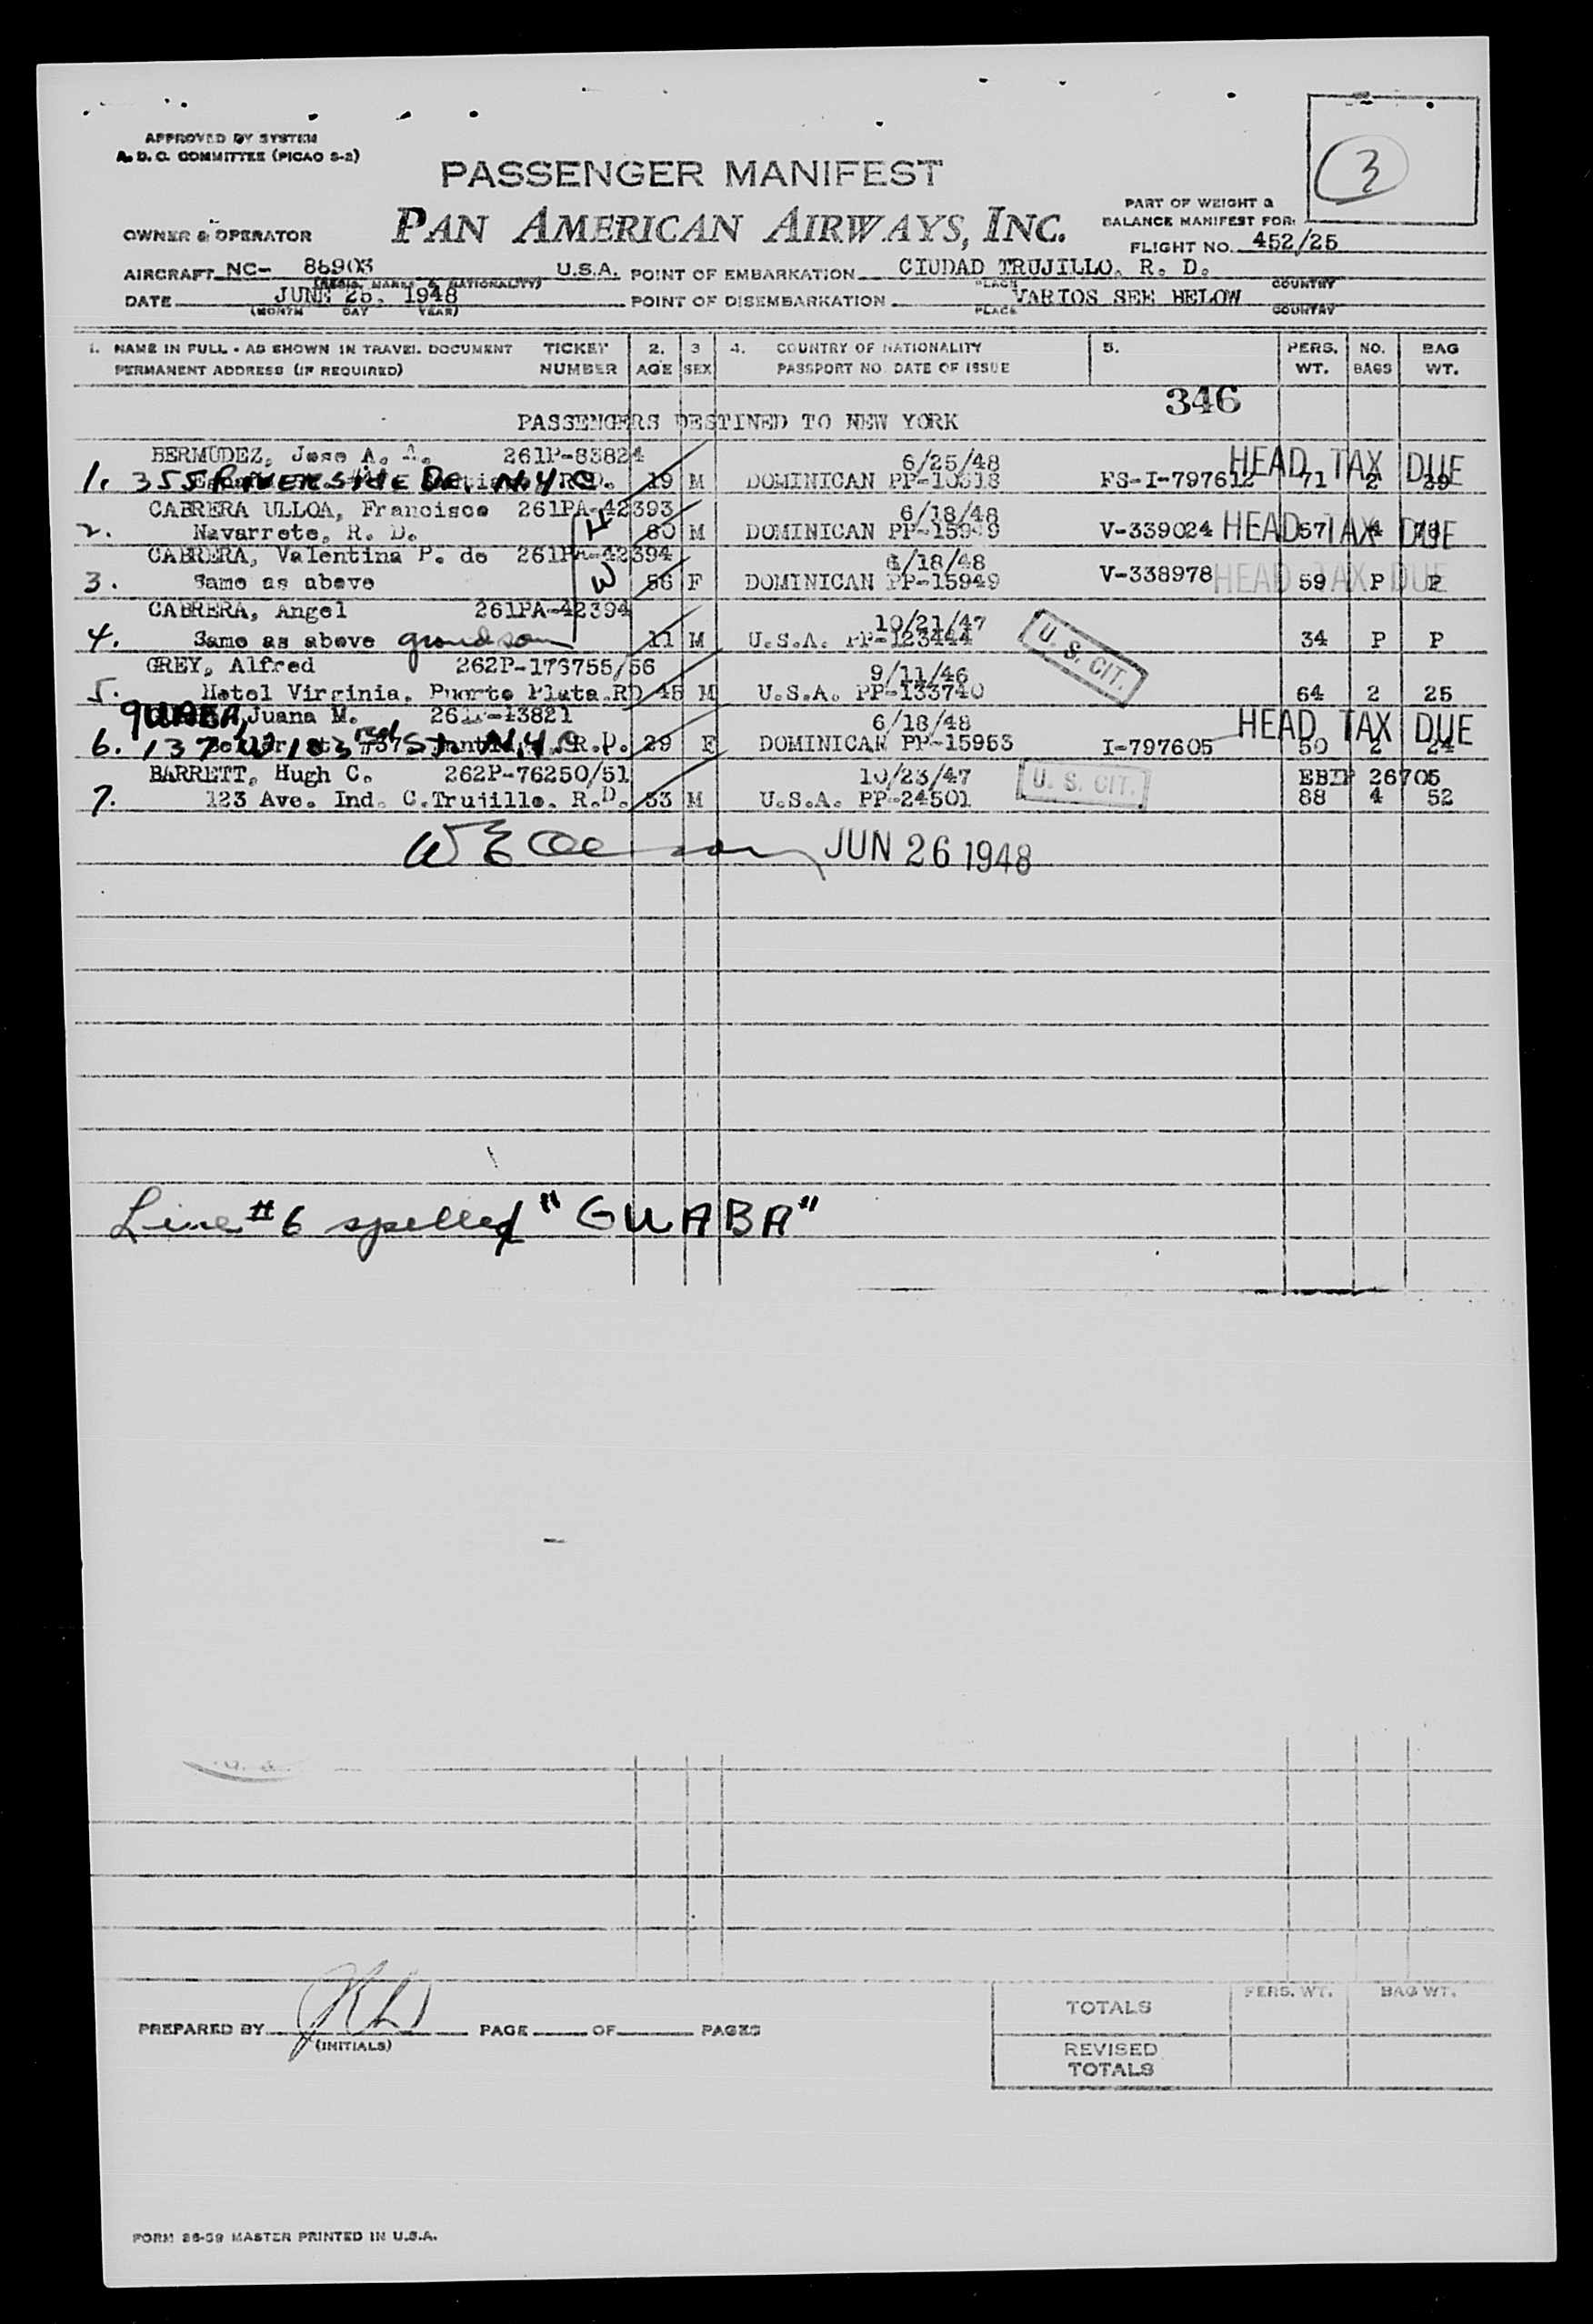 APPROVED BY SYSTEM
A. D. C. COMMITTEE (PICAO S-2)
3
PASSENGER MANIFEST
PART OF WEIGHT &
BALANCE MANIFEST FOR:
OWNER & OPERATOR PAN AMERICAN AIRWAYS, INC.
FLIGHT NO. 452/25
AIRCRAFT NC- 86903 U.S.A. POINT OF EMBARKATION CIUDAD TRUJILLO, R. D.
(REGIS. MARKS & NATIONALITY) PLACE COUNTRY
DATE JUNE 25, 1948 POINT OF DISEMBARKATION VARIOS SEE BELOW
(MONTH DAY YEAR) PLACE COUNTRY
1. NAME IN FULL - AS SHOWN IN TRAVEL DOCUMENT TICKET 2. 3 4. COUNTRY OF NATIONALITY 5. PERS. NO. BAG
PERMANENT ADDRESS (IF REQUIRED) NUMBER AGE SEX PASSPORT NO. DATE OF ISSUE WT. BAGS WT.
346
PASSENGERS DESTINED TO NEW YORK
BERMUDEZ, Jose A. A. 261P-83824 6/25/48 HEAD TAX DUE
1. 355 RIVERSIDE DR. N.Y.C. R.D. 19 M DOMINICAN FS-I-797612 71 2 39
CABRERA ULLOA, Francisco 261PA-42393 6/18/48
2. Navarrete, R. D. H 60 M DOMINICAN PP-15949 V-339024 HEAD TAX DUE 67 4
CABRERA, Valentina P. de 261PA-42394 6/18/48
3. Same as above W 56 F DOMINICAN PP-15949 V-338978 HEAD TAX DUE 59 P P
CABRERA, Angel 261PA-42394 10/21/47
4. Same as above grandson 11 M U.S.A. PP-123444 U. S. CIT. 34 P P
GREY, Alfred 262P-176755/56 9/11/46
5. Hotel Virginia, Puerto Plata.RD 45 M U.S.A. PP-133740 64 2 25
GUABA, Juana M. 13821 6/18/48 HEAD TAX DUE
6. 137 W 103rd St. N.Y.C. R.D. 29 F DOMINICAN PP-15953 I-797605 50 2 24
BARRETT, Hugh C. 262P-76250/51 10/23/47 U. S. CIT. 26705
7. 123 Ave. Ind. C.Trujillo, R.D. 53 M U.S.A. PP-24501 88 4 52
JUN 26 1948
Line #6 spelled "GUABA"
TOTALS PERS. WT. BAG WT.
PREPARED BY PAGE OF PAGES
(INITIALS)
REVISED
TOTALS
FORM 86-59 MASTER PRINTED IN U.S.A.